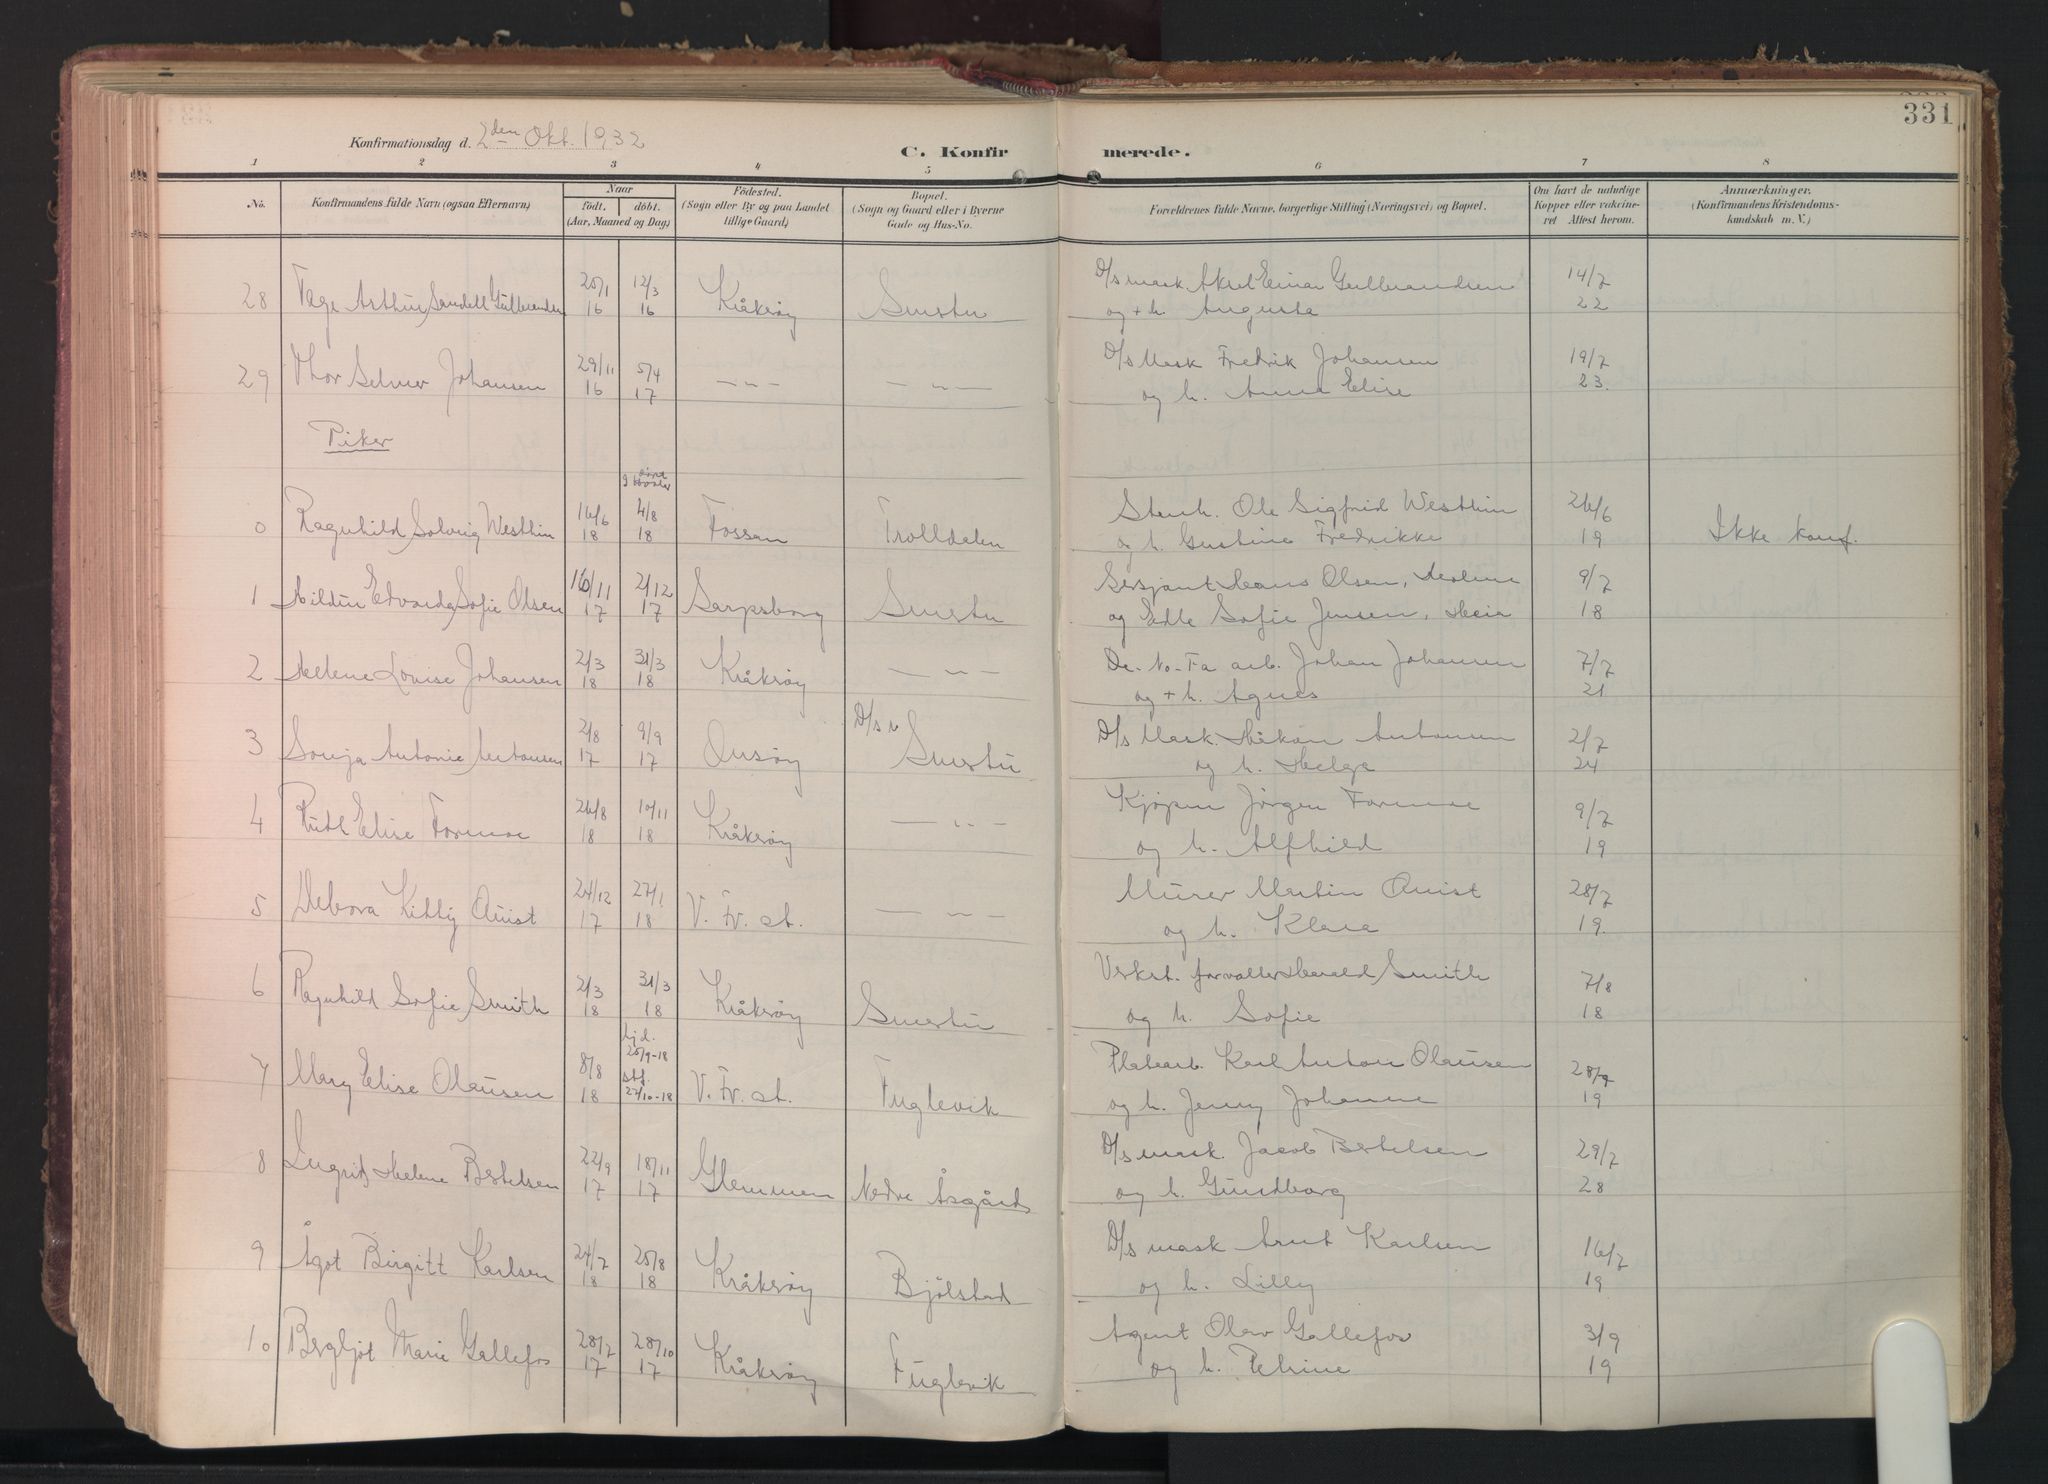 331
Konfirmationsdag d. 2den Okt. 1932
C. Konfirmerede.
1 2 3 4 5 6 7 8
No.
Konfirmandens fulde Navn (ogsaa Efternavn)
Naar
födt. döbt.
(Aar, Maaned og Dag)
Födested.
(Sogn eller By og paa Landet
tillige Gaard)
Bopæl.
(Sogn og Gaard eller i Byerne
Gade og Hus-No.
Forældrenes fulde Navne, borgerlige Stilling (Næringsvei) og Bopæl.
Om havt de naturlige
Kopper eller vakcine-
ret Attest herom.
Anmærkninger.
(Konfirmandens Kristendoms-
kundskab m. V.)
28 Tage Arthur Sandell Gulbrandsen 20/1 16 12/3 16 Kråkerøy Smertu D/s mask. Aksel Einar Gulbrandsen 14/7
og + h. Augusta 22
29 Thor Selmer Johansen 29/11 16 5/4 17 — „ — — „ — D/s Mask Fredrik Johansen 19/7
og h. Anna Elise 23.
Piker
0 Ragnhild Solveig Westlin 16/6 18 4/8 18 Fossan Trolldalen Stenh. Ole Sigfrid Westlin 26/6
og h. Gustine Fredrikke 19 Ikke konf.
1 Hildur Edvarda Sofie Olsen 10/11 17 2/12 17 Sarpsborg Smertu Sersjant Hans Olsen,
og Edle Sofie Jensen, Heia 9/7 18
2 Helene Lovise Johansen 2/3 18 31/3 18 Kråkerøy — „ — De-No-Fa arb. Johan Johansen 7/7
og + h. Agnes 21
3 Sonja Antonie Antonsen 2/8 17 9/9 17 Onsøy Smertu D/s Mask. Håkon Antonsen 2/7
og h. Helga 24
4 Ruth Elise Formoe 26/8 18 10/11 18 Kråkerøy — „ — Kjøpm Jörgen Formoe 9/7
og h. Alfhild 19
5 Debora Kitty Quist 24/12 17 27/1 18 V. Fr. st. — „ — Murer Martin Quist 28/7
og h. Klara 19.
6 Ragnhild Sofie Smith 2/3 18 31/3 18 Kråkerøy Smertu Verkst. forvalter Harald Smith 7/8
og h. Sofie 18
7 Mary Elise Olausen 8/8 18 hj.d. 20/9-18 stf. 27/10-18 V. Fr. st. Fuglevik Platearb. Karl Anton Olausen 28/9
og h. Jenny Johanne 19
8 Ingrid Helene Bertelsen 22/9 17 18/11 17 Glemmen Nedre Åsgård D/s mask. Jacob Bertelsen 29/7
og h. Gundborg 28
9 Ågot Birgitt Karlsen 24/7 18 25/8 18 Kråkerøy Bjölstad D/s mask Arnt Karlsen 16/7
og h. Lilly 19
10 Bergljot Marie Gallefos 28/7 17 28/10 17 Kråkerøy Fuglevik Agent Olav Gallefos 3/9
og h. Petrine 19